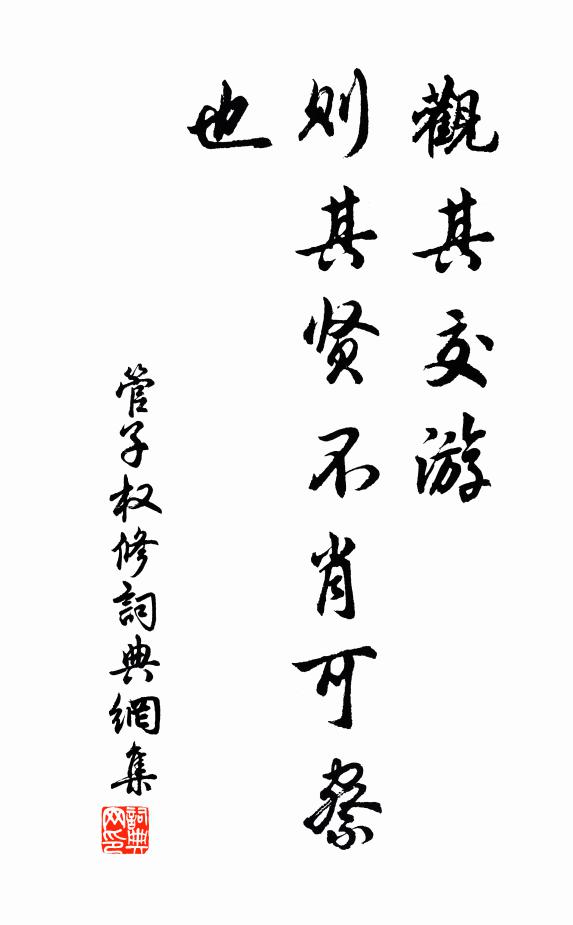 觀其交游
则其贤不肖可察
也
管子权修詞典網集
詞典
网印